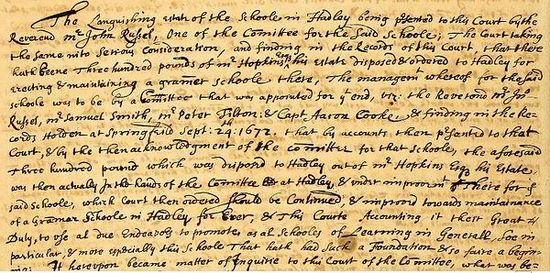 The Languishing estate of the Schoole in Hadley being p'sented to this Court by the
Reverend mr. John Russel, One of the Comittee for the Said Schoole; The Court taking
the same into Serious Consideration, and finding in the Records of this Court, that there
hath beene Three hundred pounds of mr. Hopkins his Estate disposed & ordered to Hadley for
erecting & maintaining a gramer Schoole there, The managemt whereof for the said
schoole was to be by a Comittee that was appointed for yt end, viz: the Reverend mr. Jno
Russel, mr. Samuel Smith, mr. Peter Tilton: & Capt. Aaron Cooke, & finding in the Re-
cords Holden at Springfeild Sept: 24: 1672. that by accounts then p'sented to that
Court, & by the then acknowledgment of the comittee for that schoole, the aforesaid
Three hundred pound which was disposd to Hadley out of mr. Hopkins Esq his Estate,
was then actually In the hands of the Comittee at Hadley, & under improvmt There for ye
said schoole, which Court then ordered should be Continued, & improvd towards maintainance
of a Gramer Schoole in Hadley for Ever, & This Courte Accounting it theire Great
Duty, to use al due Endeavors to promote al Schooles of Learning in Generall, Soe in
particular, & more especially this Schoole That hath had Such a Foundation & so faire a begin-
ing It hereupon became matter of Inquirie to this Court of the Comittee, what was be-